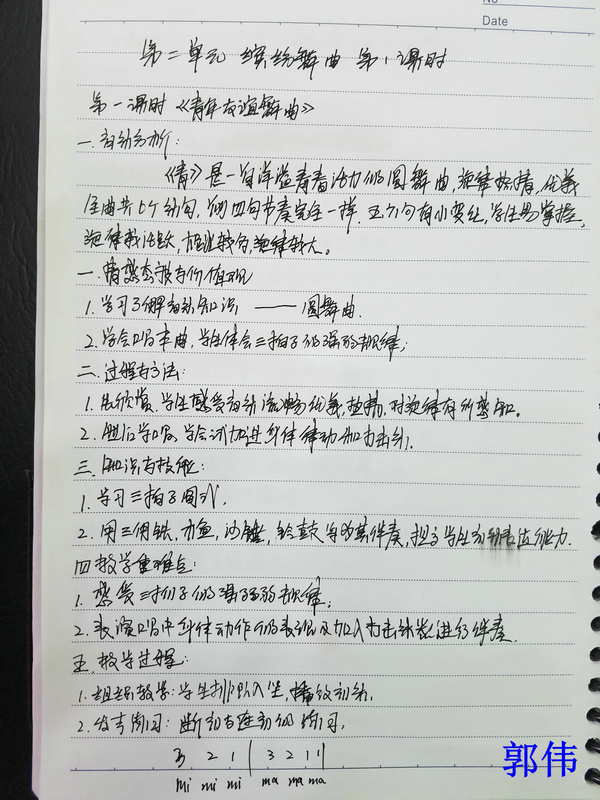 No
Date
第二单元 缤纷舞曲 第1课时
第一课时《青年友谊舞曲》
一.教材分析:
《青》是一首洋溢青春活力的圆舞曲,旋律热情,优美
全曲共6个乐句,前四句节奏完全一样,五六句有小变化,学生易掌握,
旋律较活跃,
一.情感态度与价值观
1.学习了解音乐知识 —— 圆舞曲.
2.学会唱本曲,学生体会三拍子的强弱规律;
二.过程与方法:
1.先欣赏,学生感受音乐流畅优美,热情,对旋律有所感知。
2.随后学唱,学会试加进身体律动和打击乐.
三.知识与技能:
1.学习三拍子图式.
2.用三角铁,木鱼,沙锤,铃鼓等为其伴奏,提高学生音乐表达能力.
四.教学重难点:
1.感受三拍子的强弱弱规律;
2.表演唱中身体动作的表现及加入打击乐进行伴奏.
五.教学过程:
1.组织教学:学生排队入坐,播放音乐.
2.发声练习:断音与连音的练习.
3 2 1 | 3 2 1 ‖
mi mi mi | ma ma ma
郭伟